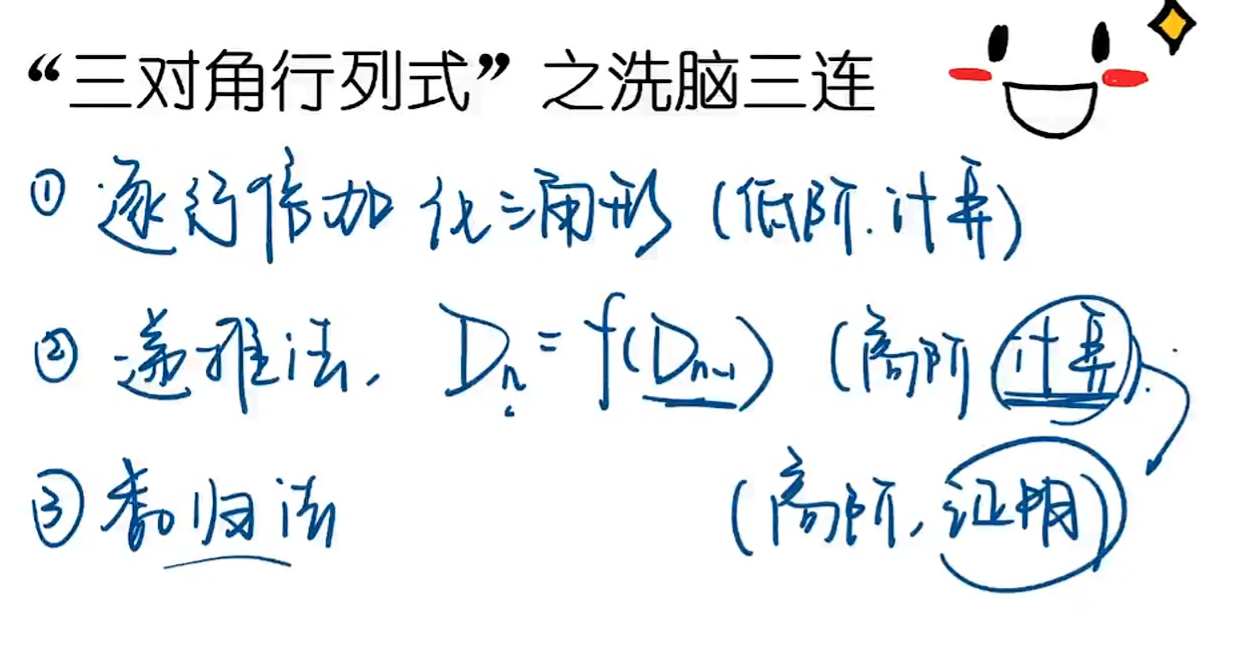 “三对角行列式”之洗脑三连
① 逐行倍加 化三角形 (低阶.计算)
② 递推法, Dₙ = f(Dₙ₋₁) (高阶 计算).
③ 数归法 (高阶, 证明)